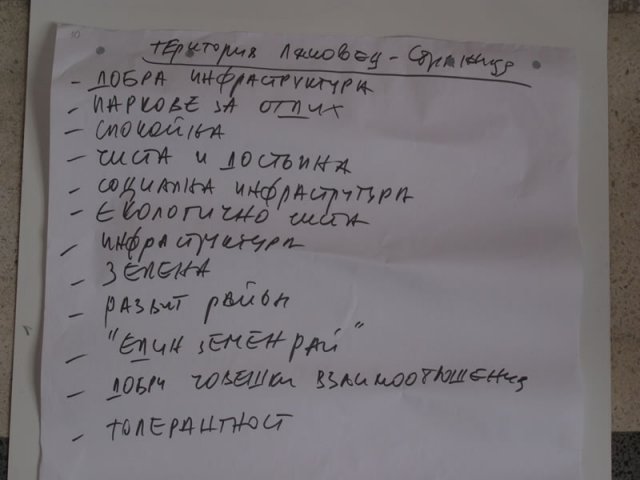 10
ТЕРИТОРИЯ ЛЯМОВЕЦ -
- ДОБРА ИНФРАСТРУКТУРА
- ПАРКОВЕ ЗА ОТДИХ
- СПОКОЙНА
- ЧИСТА И ДОСТЪПНА
- СОЦИАЛНА ИНФРАСТРУТУРА
- ЕКОЛОГИЧНО ЧИСТА
- ИНФРАСТРУКТУРА
- ЗЕЛЕНА
- РАЗВИТ РАЙОН
- "ЕДИН ЗЕМЕН РАЙ"
- ДОБРИ ЧОВЕШКИ ВЗАИМООТНОШЕНИЯ
- ТОЛЕРАНТНОСТ